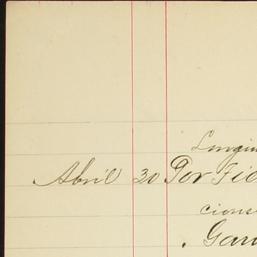 Longin
Abril 30 Por Fid
cione
Gar